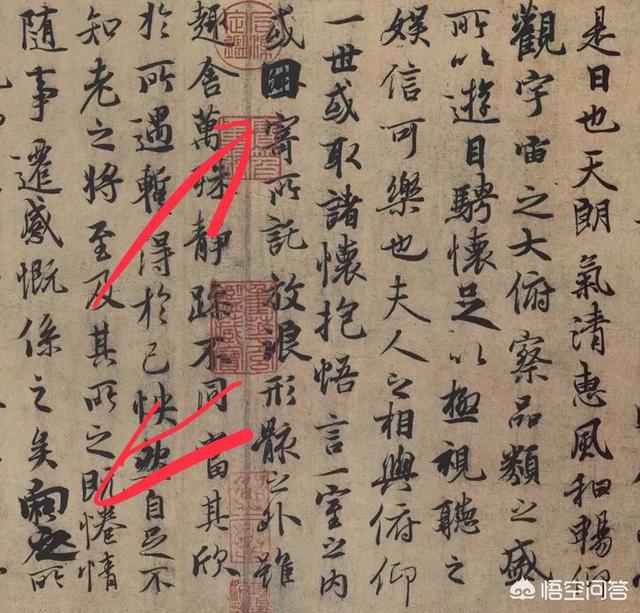 是日也天朗氣清惠風和暢仰
觀宇宙之大俯察品類之盛
所以遊目騁懷足以極視聽之
娛信可樂也夫人之相與俯仰
一世或取諸懷抱悟言一室之內
或因寄所託放浪形骸之外雖
趣舍萬殊靜躁不同當其欣
於所遇暫得於己怏然自足不
知老之將至及其所之既惓情
隨事遷感慨係之矣向之所
悟空问答